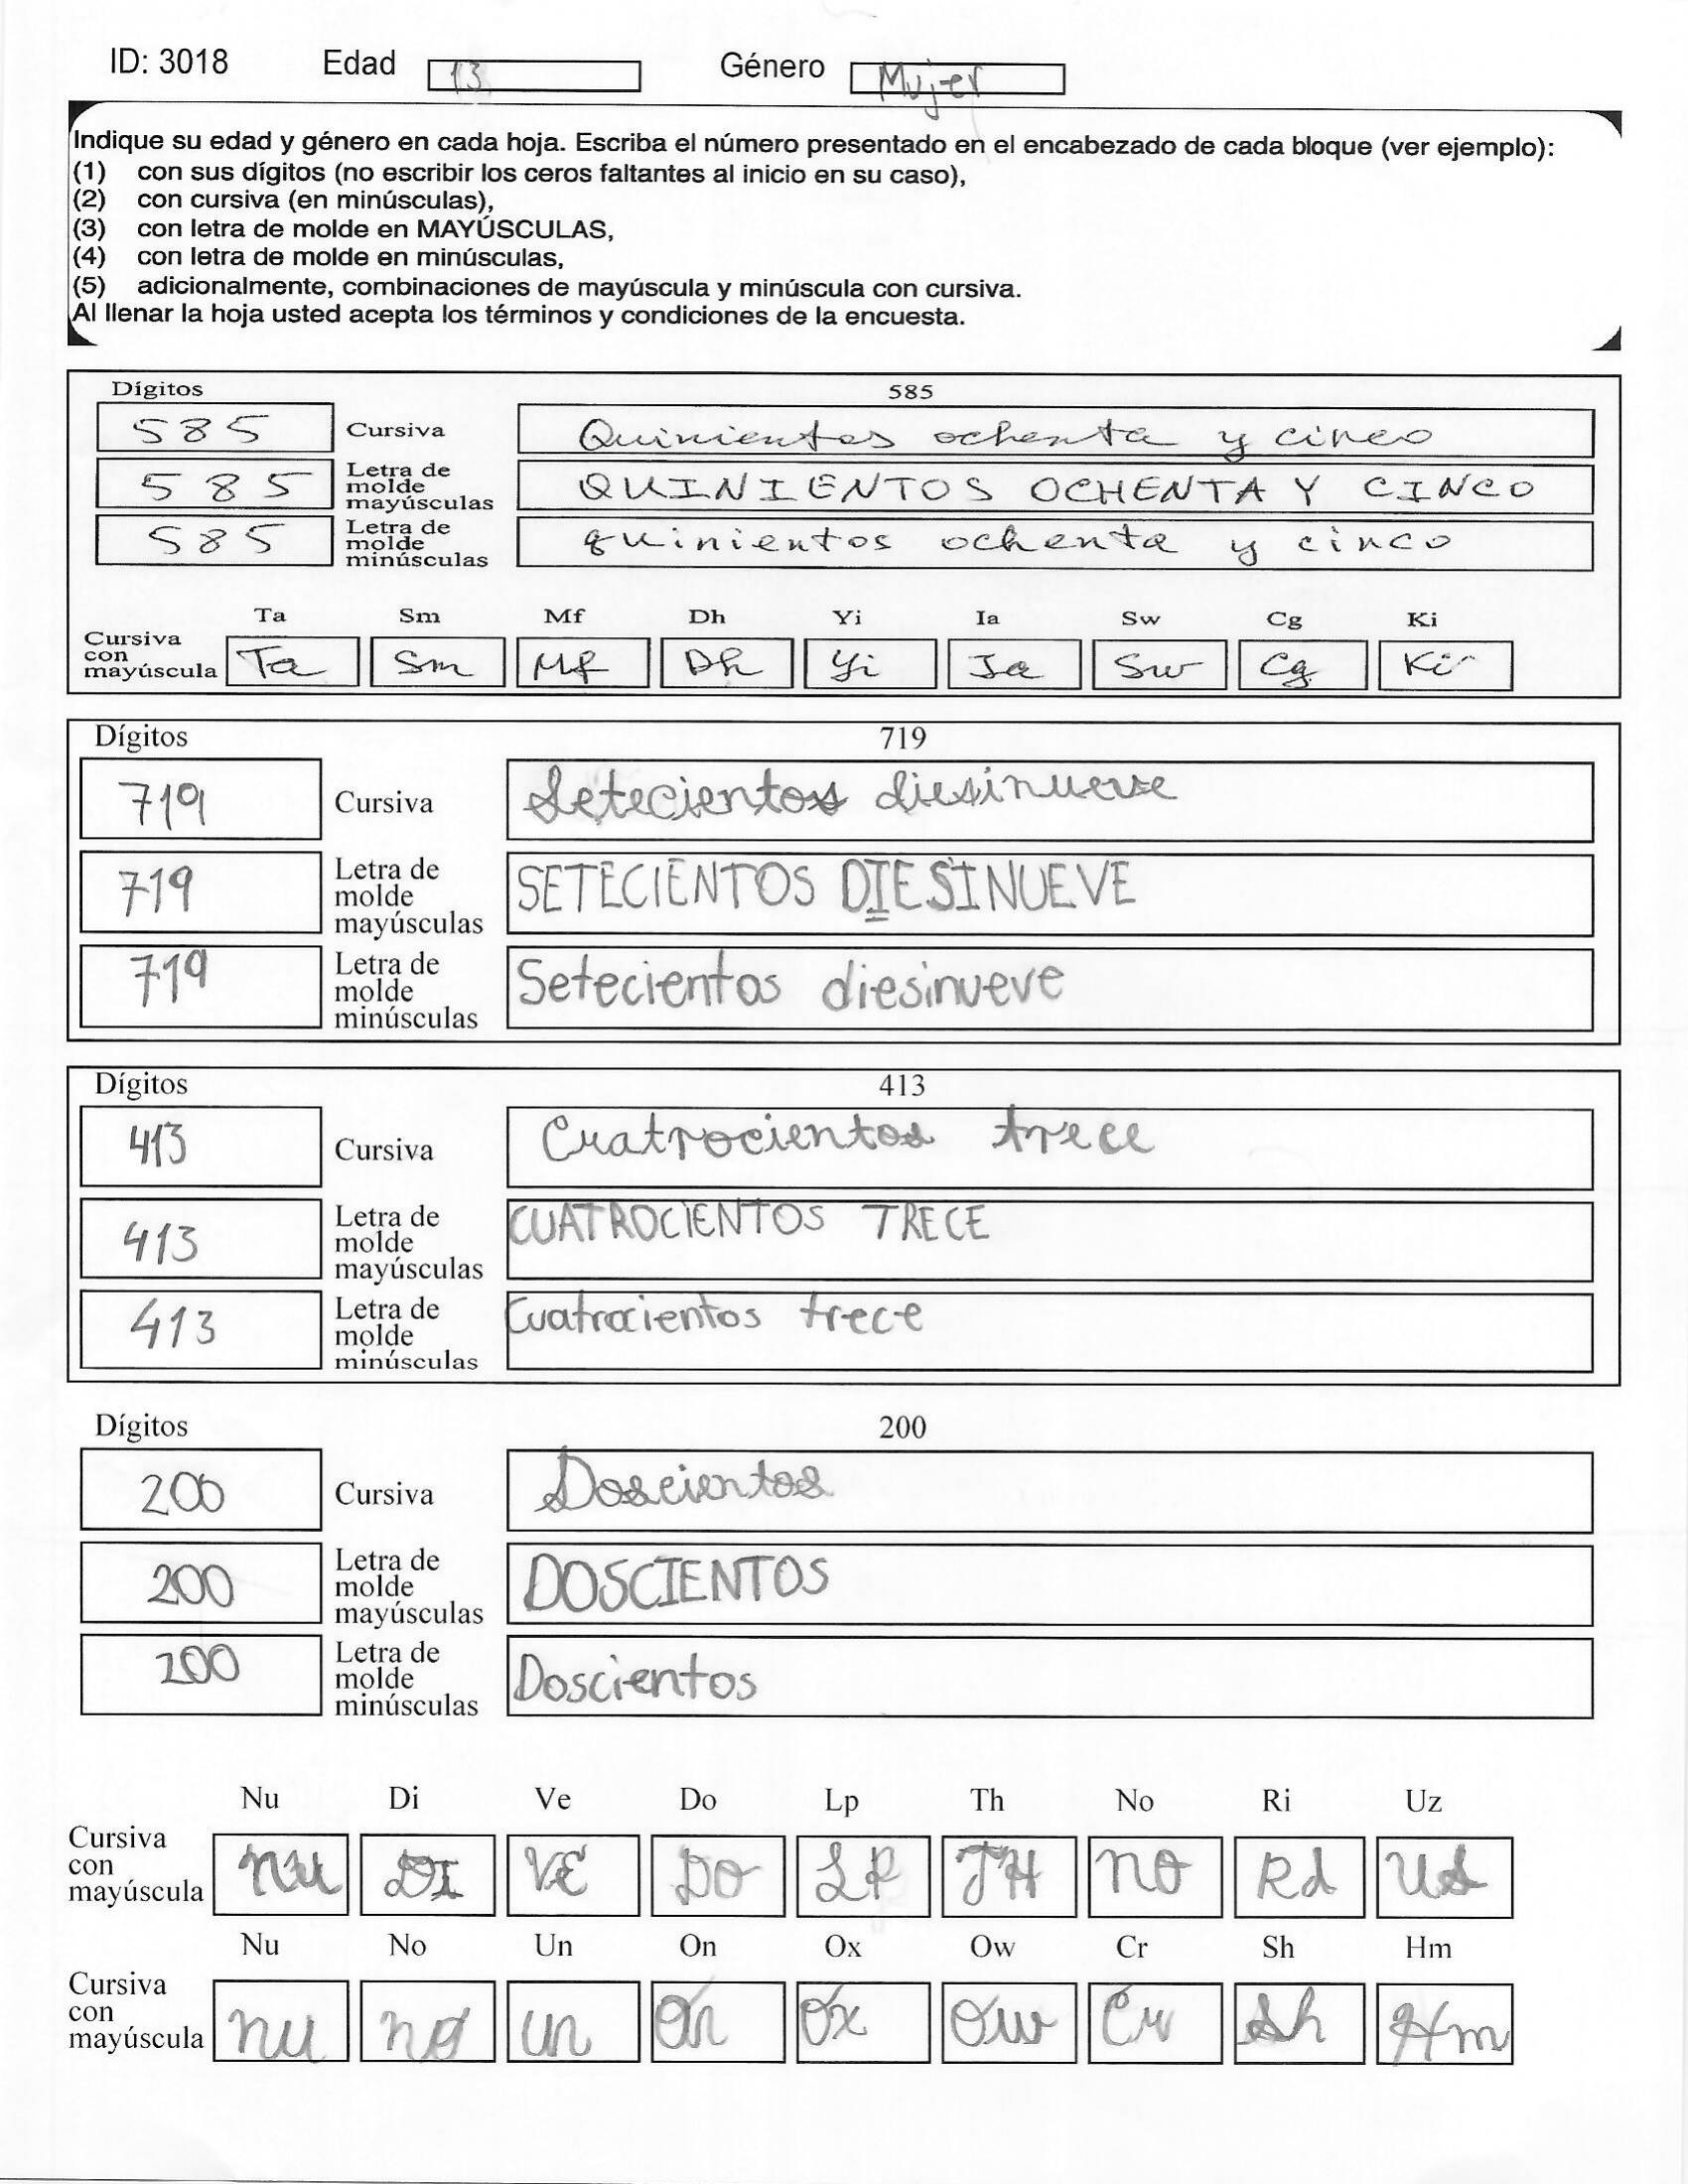 ID: 3018 Edad 13 Género Mujer
Indique su edad y género en cada hoja. Escriba el número presentado en el encabezado de cada bloque (ver ejemplo):
(1) con sus dígitos (no escribir los ceros faltantes al inicio en su caso),
(2) con cursiva (en minúsculas),
(3) con letra de molde en MAYÚSCULAS,
(4) con letra de molde en minúsculas,
(5) adicionalmente, combinaciones de mayúscula y minúscula con cursiva.
Al llenar la hoja usted acepta los términos y condiciones de la encuesta.
Dígitos 585
585 Cursiva Quinientos ochenta y cinco
585 Letra de molde mayúsculas QUINIENTOS OCHENTA Y CINCO
585 Letra de molde minúsculas quinientos ochenta y cinco
Ta Sm Mf Dh Yi Ia Sw Cg Ki
Cursiva con mayúscula Ta Sm Mf Dh Yi Ia Sw Cg Ki
Dígitos 719
719 Cursiva Setecientos diesinueve
719 Letra de molde mayúsculas SETECIENTOS DIESINUEVE
719 Letra de molde minúsculas Setecientos diesinueve
Dígitos 413
413 Cursiva Cuatrocientos trece
413 Letra de molde mayúsculas CUATROCIENTOS TRECE
413 Letra de molde minúsculas Cuatrocientos trece
Dígitos 200
200 Cursiva Doscientos
200 Letra de molde mayúsculas DOSCIENTOS
200 Letra de molde minúsculas Doscientos
Nu Di Ve Do Lp Th No Ri Uz
Cursiva con mayúscula nu DI VE DO LP TH NO Rd Us
Nu No Un On Ox Ow Cr Sh Hm
Cursiva con mayúscula nu no un On Ox Ow Cr Sh Hm